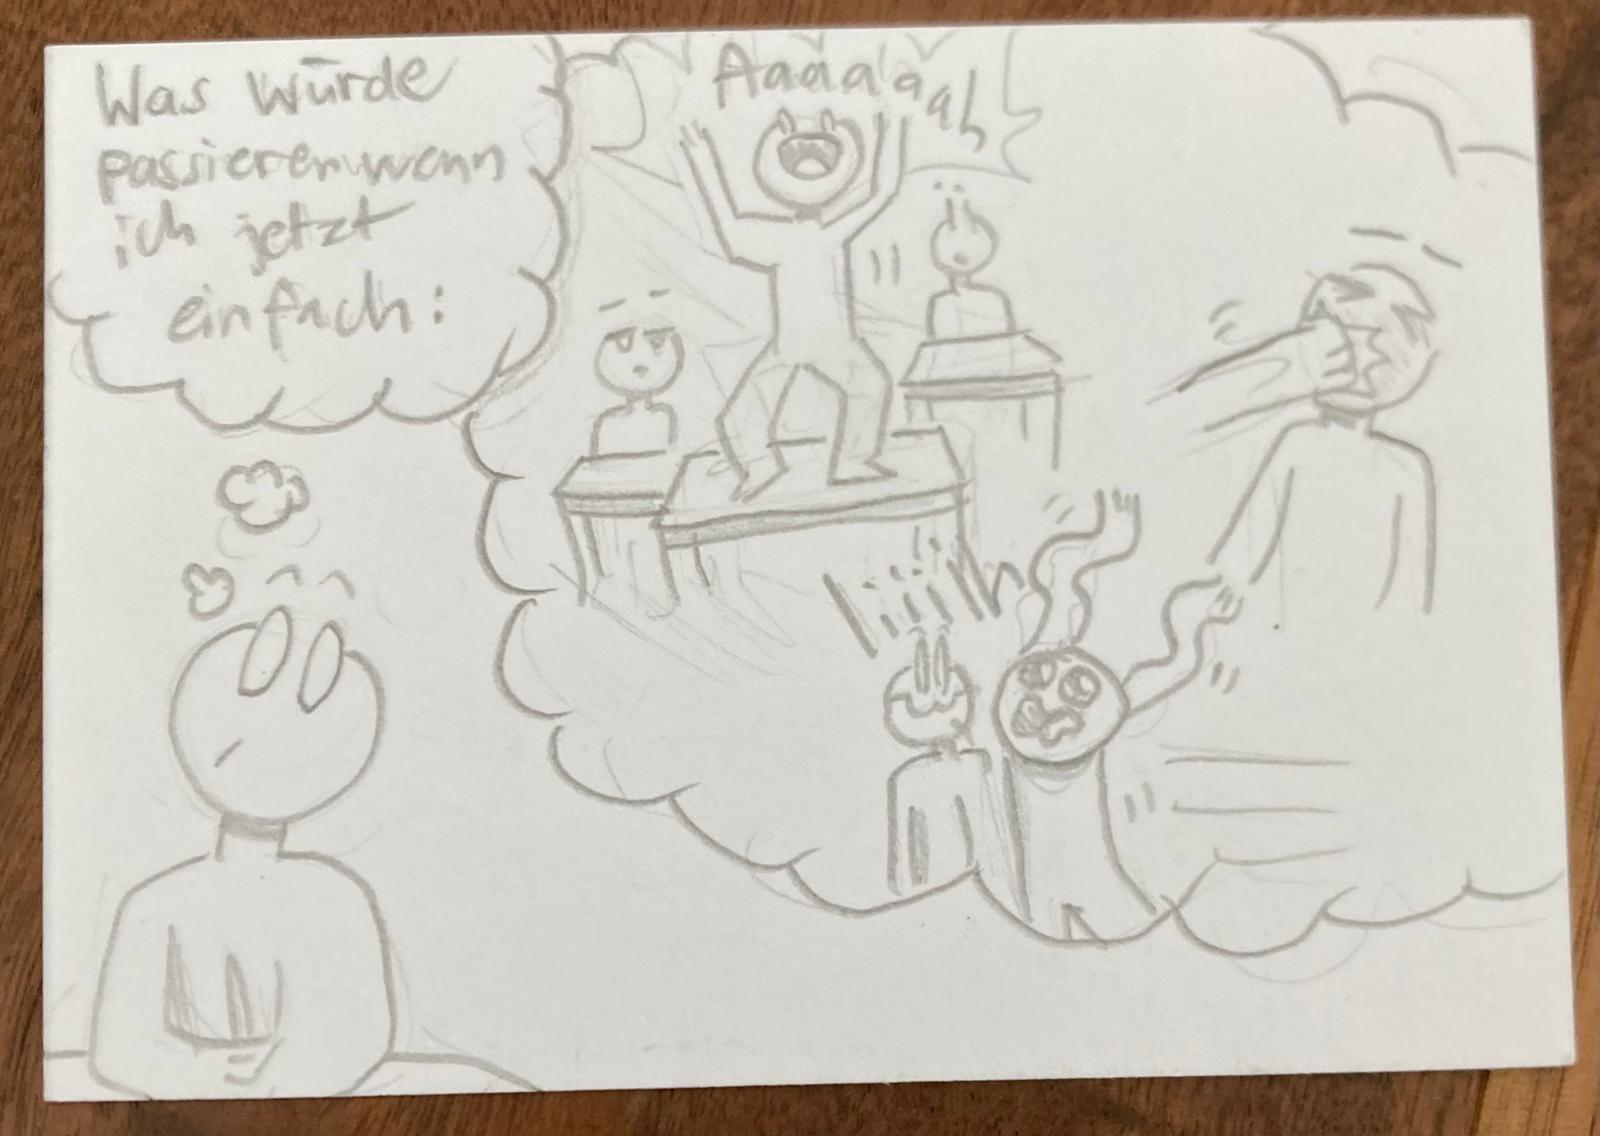 Was würde
passieren wenn
ich jetzt
einfach:
Aaaaaah